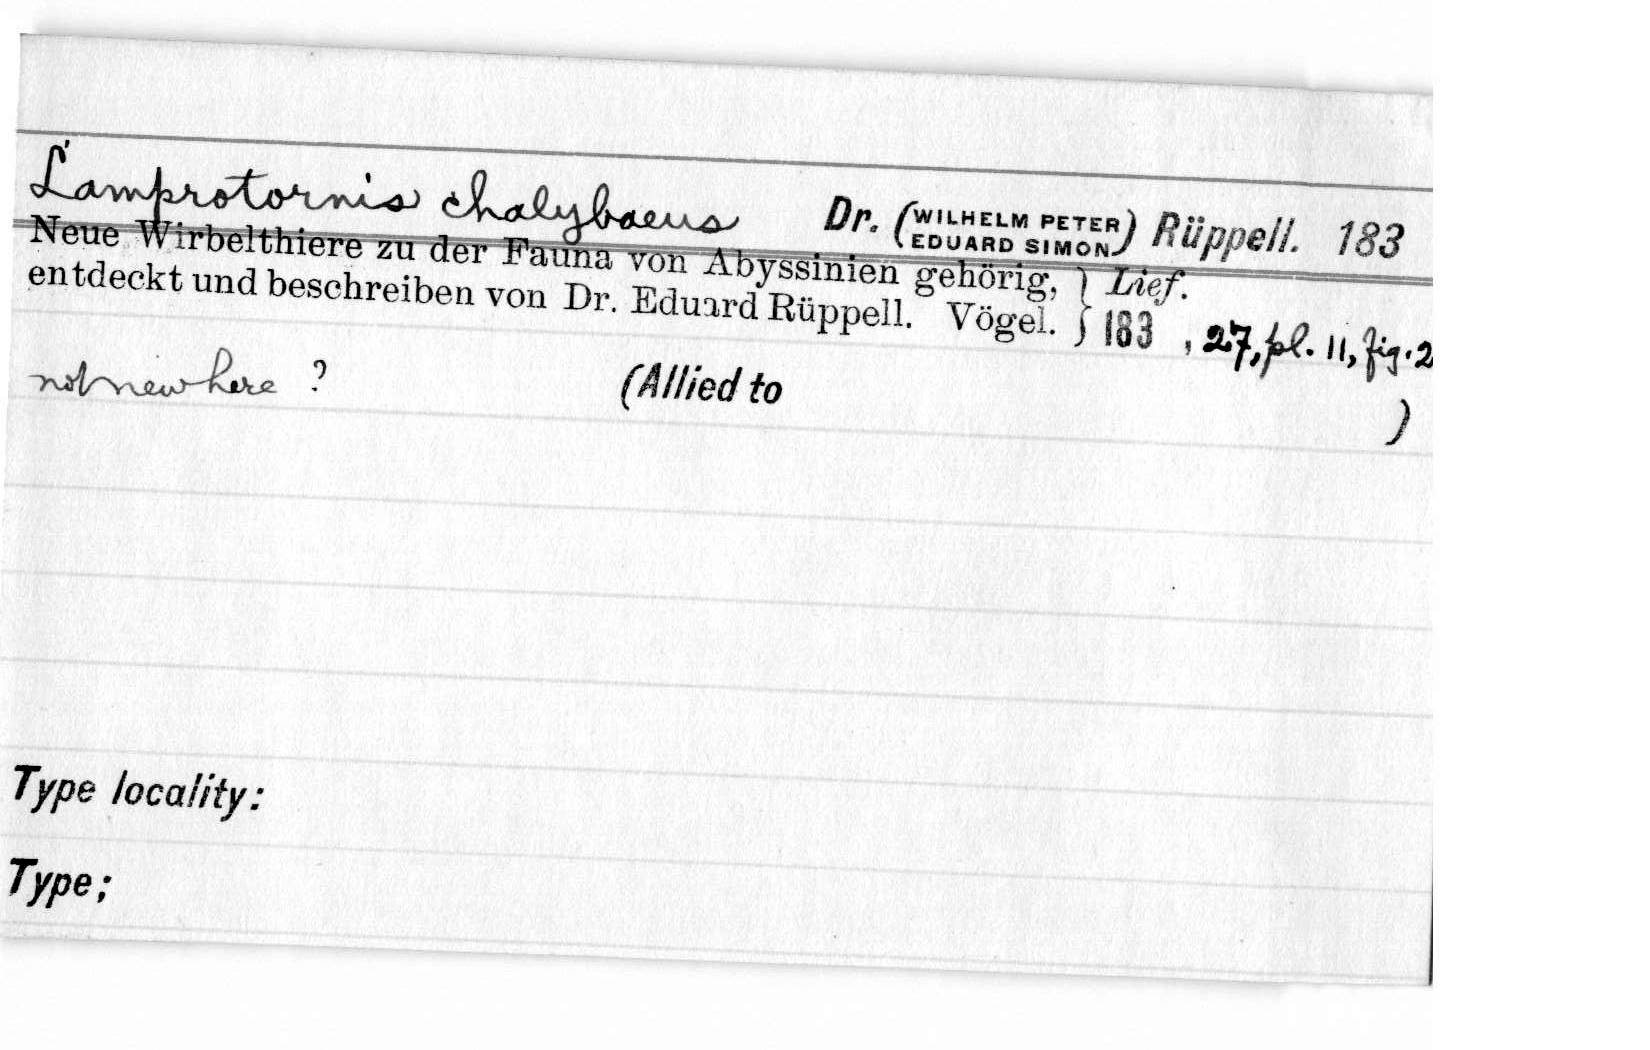 Lamprotornis chalybaeus Dr. (WILHELM PETER EDUARD SIMON) Rüppell. 183
Neue Wirbelthiere zu der Fauna von Abyssinien gehörig, } Lief.
entdeckt und beschreiben von Dr. Eduard Rüppell. Vögel. } 183 , 27, pl. 11, fig. 2
not new here ? (Allied to )
Type locality:
Type;